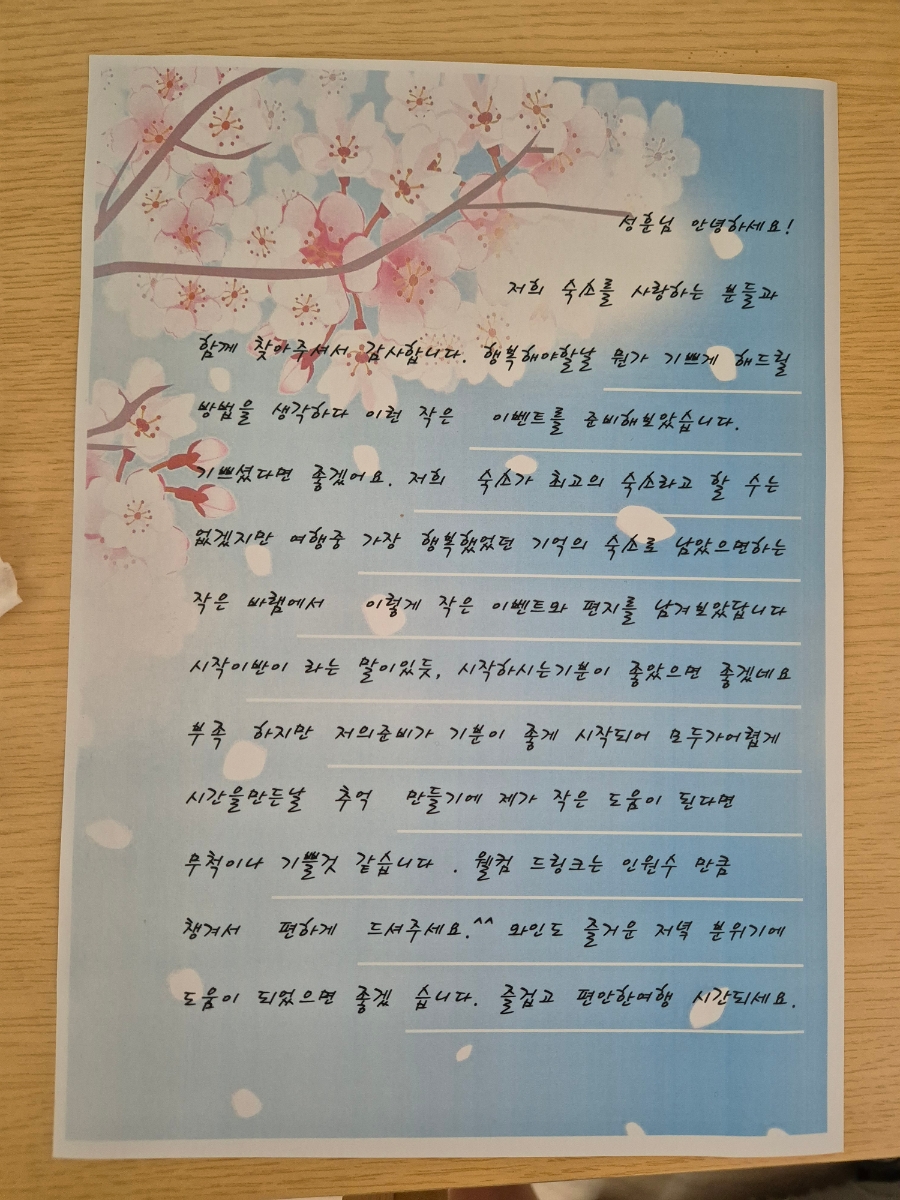 성훈님 안녕하세요!
저희 숙소를 사랑하는 분들과
함께 찾아주셔서 감사합니다. 행복해야할날 뭔가 기쁘게 해드릴
방법을 생각하다 이런 작은 이벤트를 준비해보았습니다.
기쁘셨다면 좋겠어요. 저희 숙소가 최고의 숙소라고 할 수는
없겠지만 여행중 가장 행복했었던 기억의 숙소로 남았으면하는
작은 바램에서 이렇게 작은 이벤트와 편지를 남겨보았답니다
시작이반이 라는 말이있듯, 시작하시는기분이 좋았으면 좋겠네요
부족 하지만 저의준비가 기분이 좋게 시작되어 모두가어렵게
시간을만든날 추억 만들기에 제가 작은 도움이 된다면
무척이나 기쁠것 같습니다 . 웰컴 드링크는 인원수 만큼
챙겨서 편하게 드셔주세요.^^ 와인도 즐거운 저녁 분위기에
도움이 되었으면 좋겠 습니다. 즐겁고 편안한여행 시간되세요.